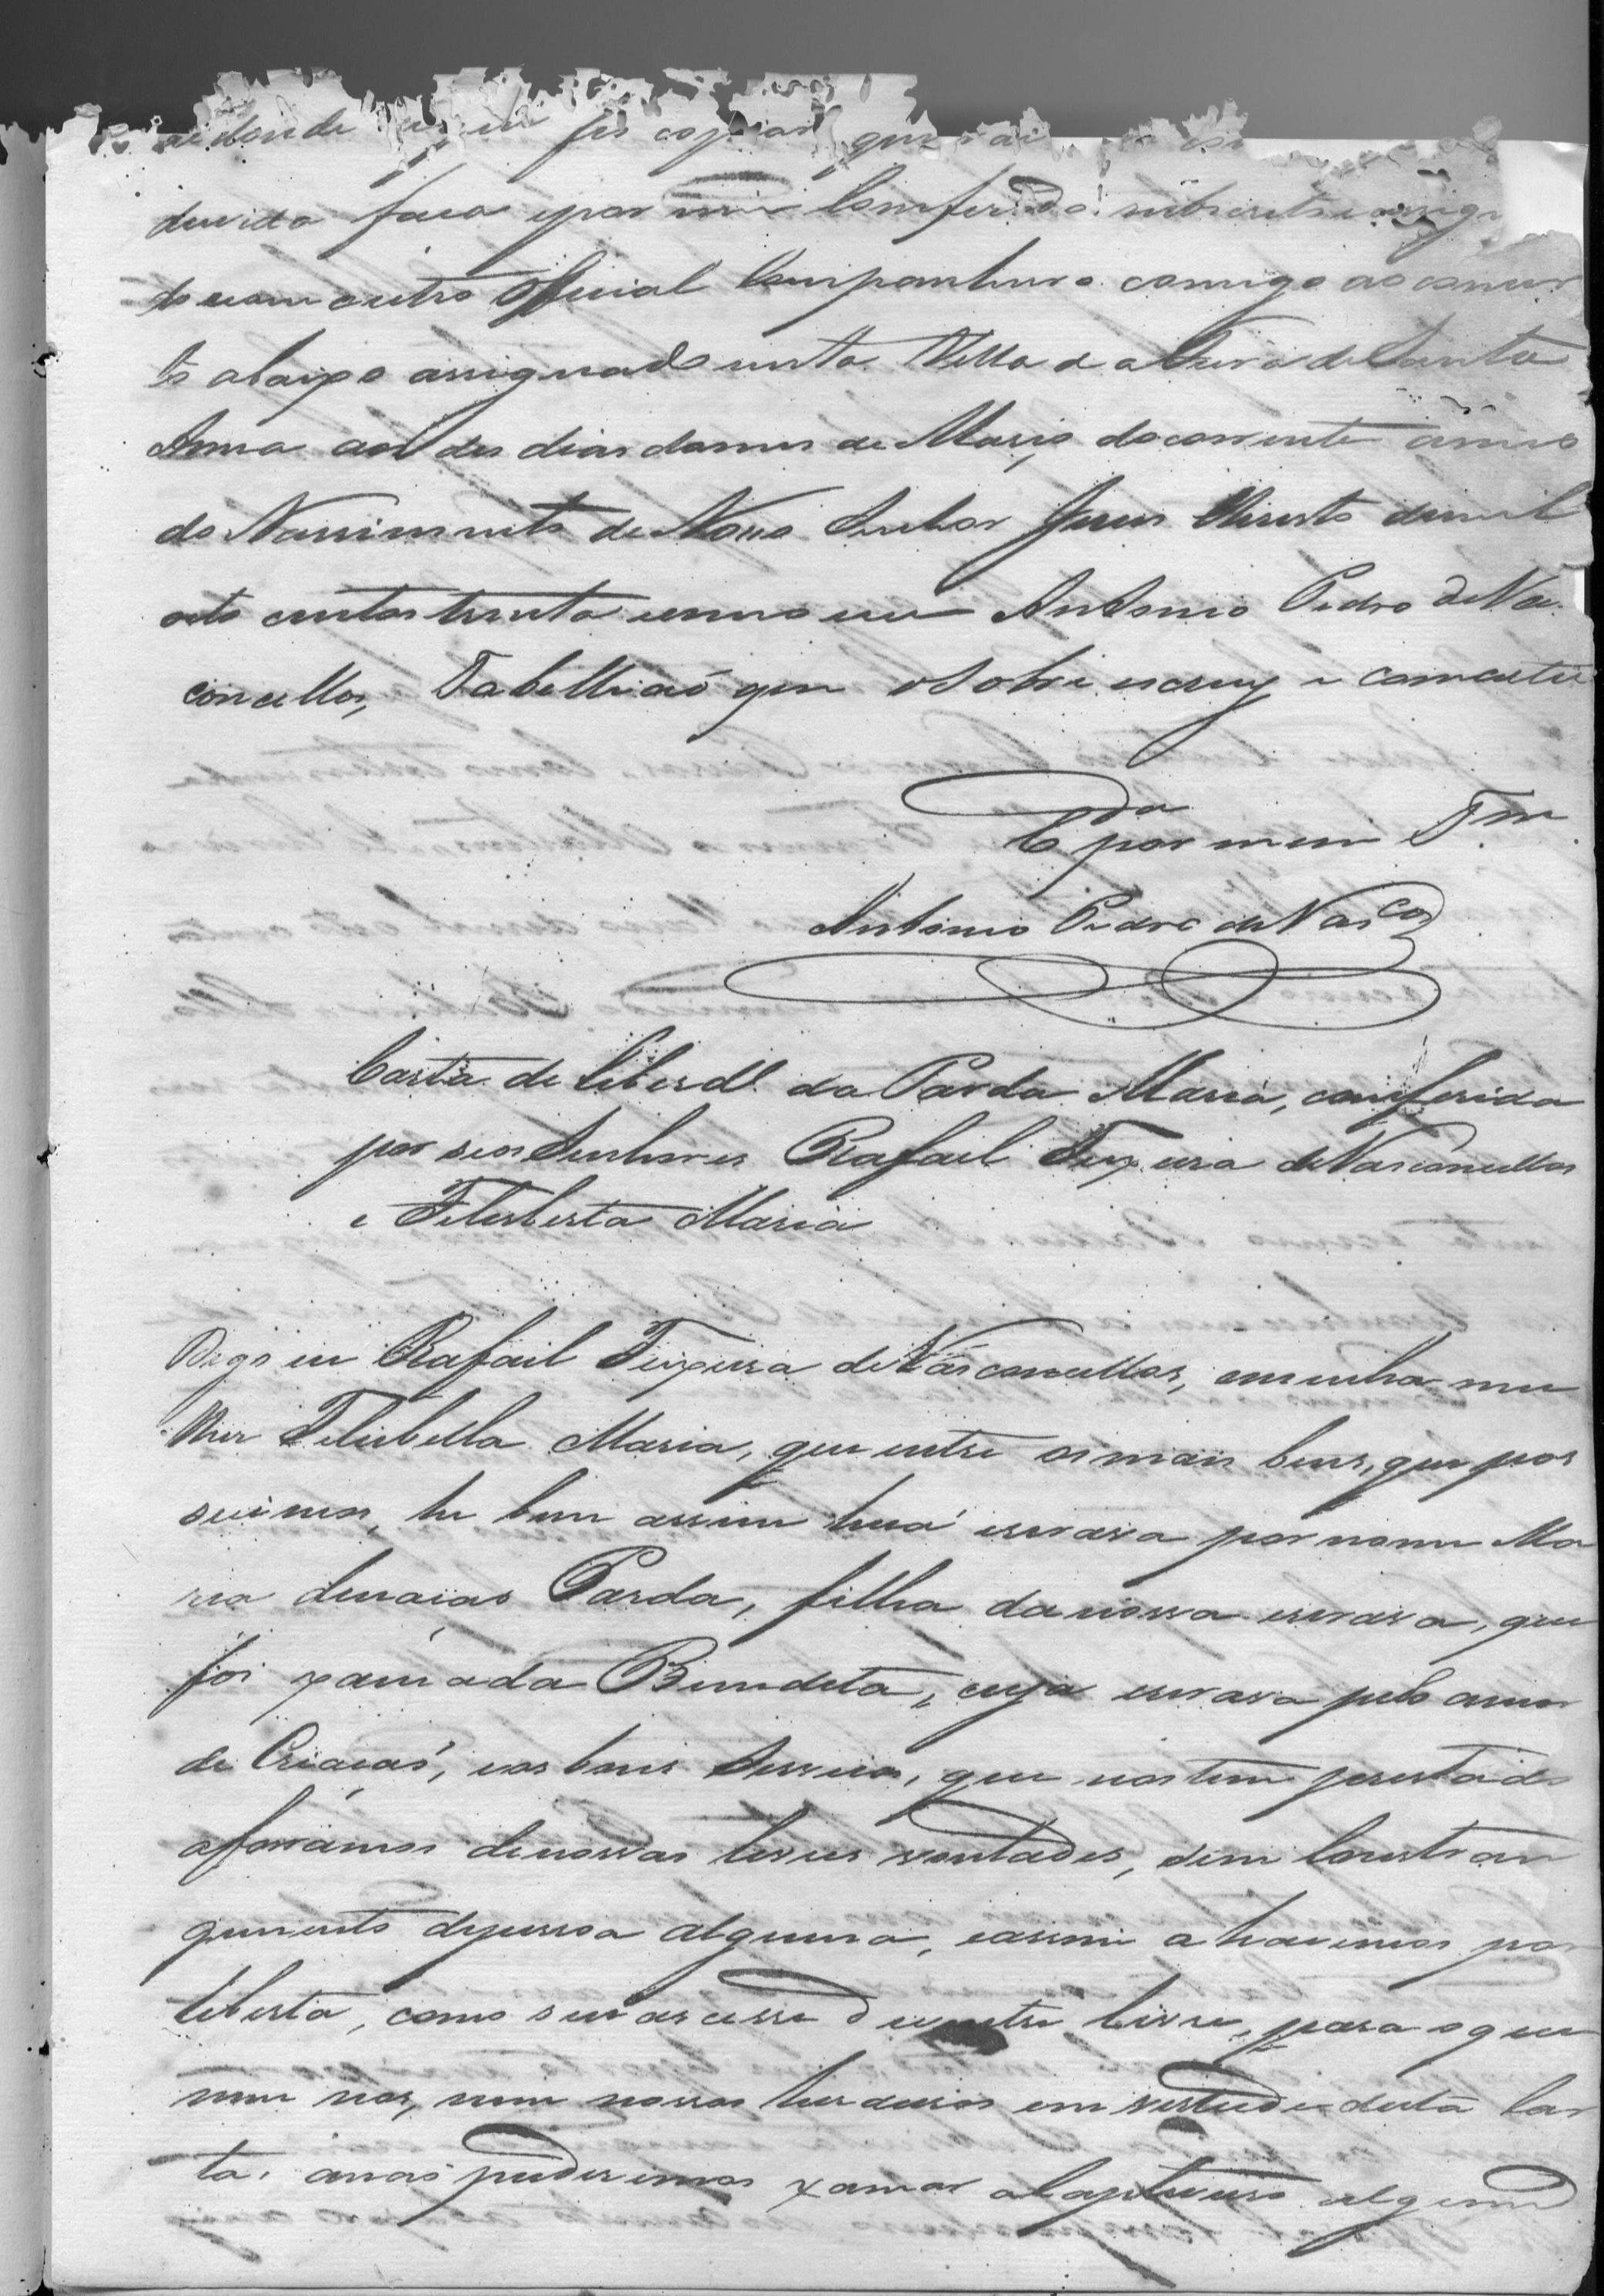 donde fis copiar que vai
duvida faca e por mim Comferida sub escrita e
to com outro Official Companheiro comigo ao comcer
to abaixo assignado nesta Villa da de Santa
Anna aos des dias do mes de Março do corrente anno
do Nassimento de Nosso Senhor Jesus Christo de mil
oito centos trinta e nno eu Antonio Pedro de Vas
concellos, Tabelliaõ que o Sobre escrevy e comcertei
C.da por mim T.am
Antonio Pedro de Vas.cos
Carta de liberd.e da Parda Maria, comferida
por seos Senhores Rafail Teixeira de Vasconcellos
e Felisberta Maria
Digo eu Rafail Teixeira de Vasconcellos, e minha mu
lher Felisbella Maria, que entre os mais bens, que pos
suimos, he bem assim huá escrava por nome Ma
ria de naçaõ Parda, filha da nossa escrava, que
foi xamada Bennedita, cuja escrava pelo amor
de Criacaó, e os bons Servicos, que nos tem prestado
aforramos de nossas livres vontades, sem Constran
gimento de pessoa alguma, e assim a havemos por
liberta, como se nascesse de ventre livre, para o que
nem nos, nem nossos herdeiros em vertude desta Car
ta, anaõ puderemos xamar a Captiveiro algum